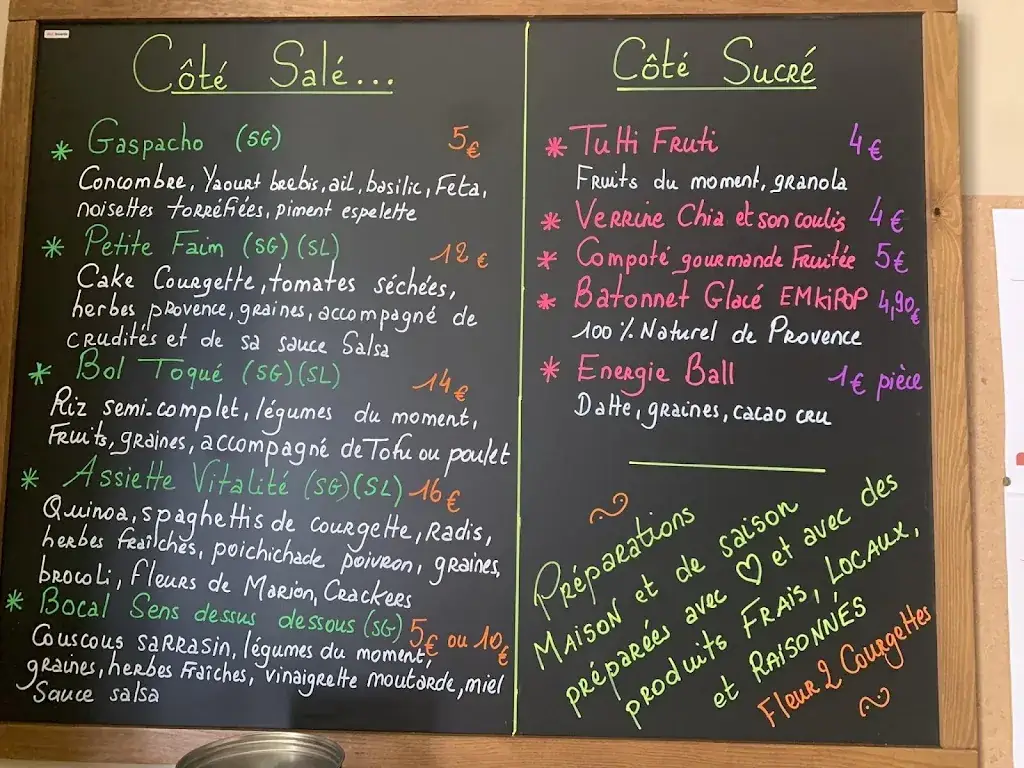 Côté Salé...
* Gaspacho (SG) 5€
Concombre, Yaourt brebis, ail, basilic, Feta,
noisettes torréfiées, piment espelette
* Petite Faim (SG) (SL) 12€
Cake Courgette, tomates séchées,
herbes provence, graines, accompagné de
crudités et de sa sauce Salsa
* Bol Toqué (SG) (SL) 14€
Riz semi-complet, légumes du moment,
Fruits, graines, accompagné de Tofu ou poulet
* Assiette Vitalité (SG) (SL) 16€
Quinoa, spaghettis de courgette, Radis,
herbes fraîches, poichichade poivron, graines,
brocoli, fleurs de Marion, Crackers
* Bocal Sens dessus dessous (SG) 5€ ou 10€
Couscous sarrasin, légumes du moment,
graines, herbes fraîches, vinaigrette moutarde, miel
Sauce salsa
Côté Sucré
* Tutti Fruti 4€
Fruits du moment, granola
* Verrine Chia et son coulis 4€
* Compoté gourmande Fruitée 5€
* Batonnet Glacé EMKiPOP 4,90€
100% Naturel de Provence
* Energie Ball 1€ pièce
Datte, graines, cacao cru
Préparations
Maison et de saison
préparées avec ♡ et avec des
produits Frais, Locaux,
et Raisonnés
Fleur 2 Courgettes